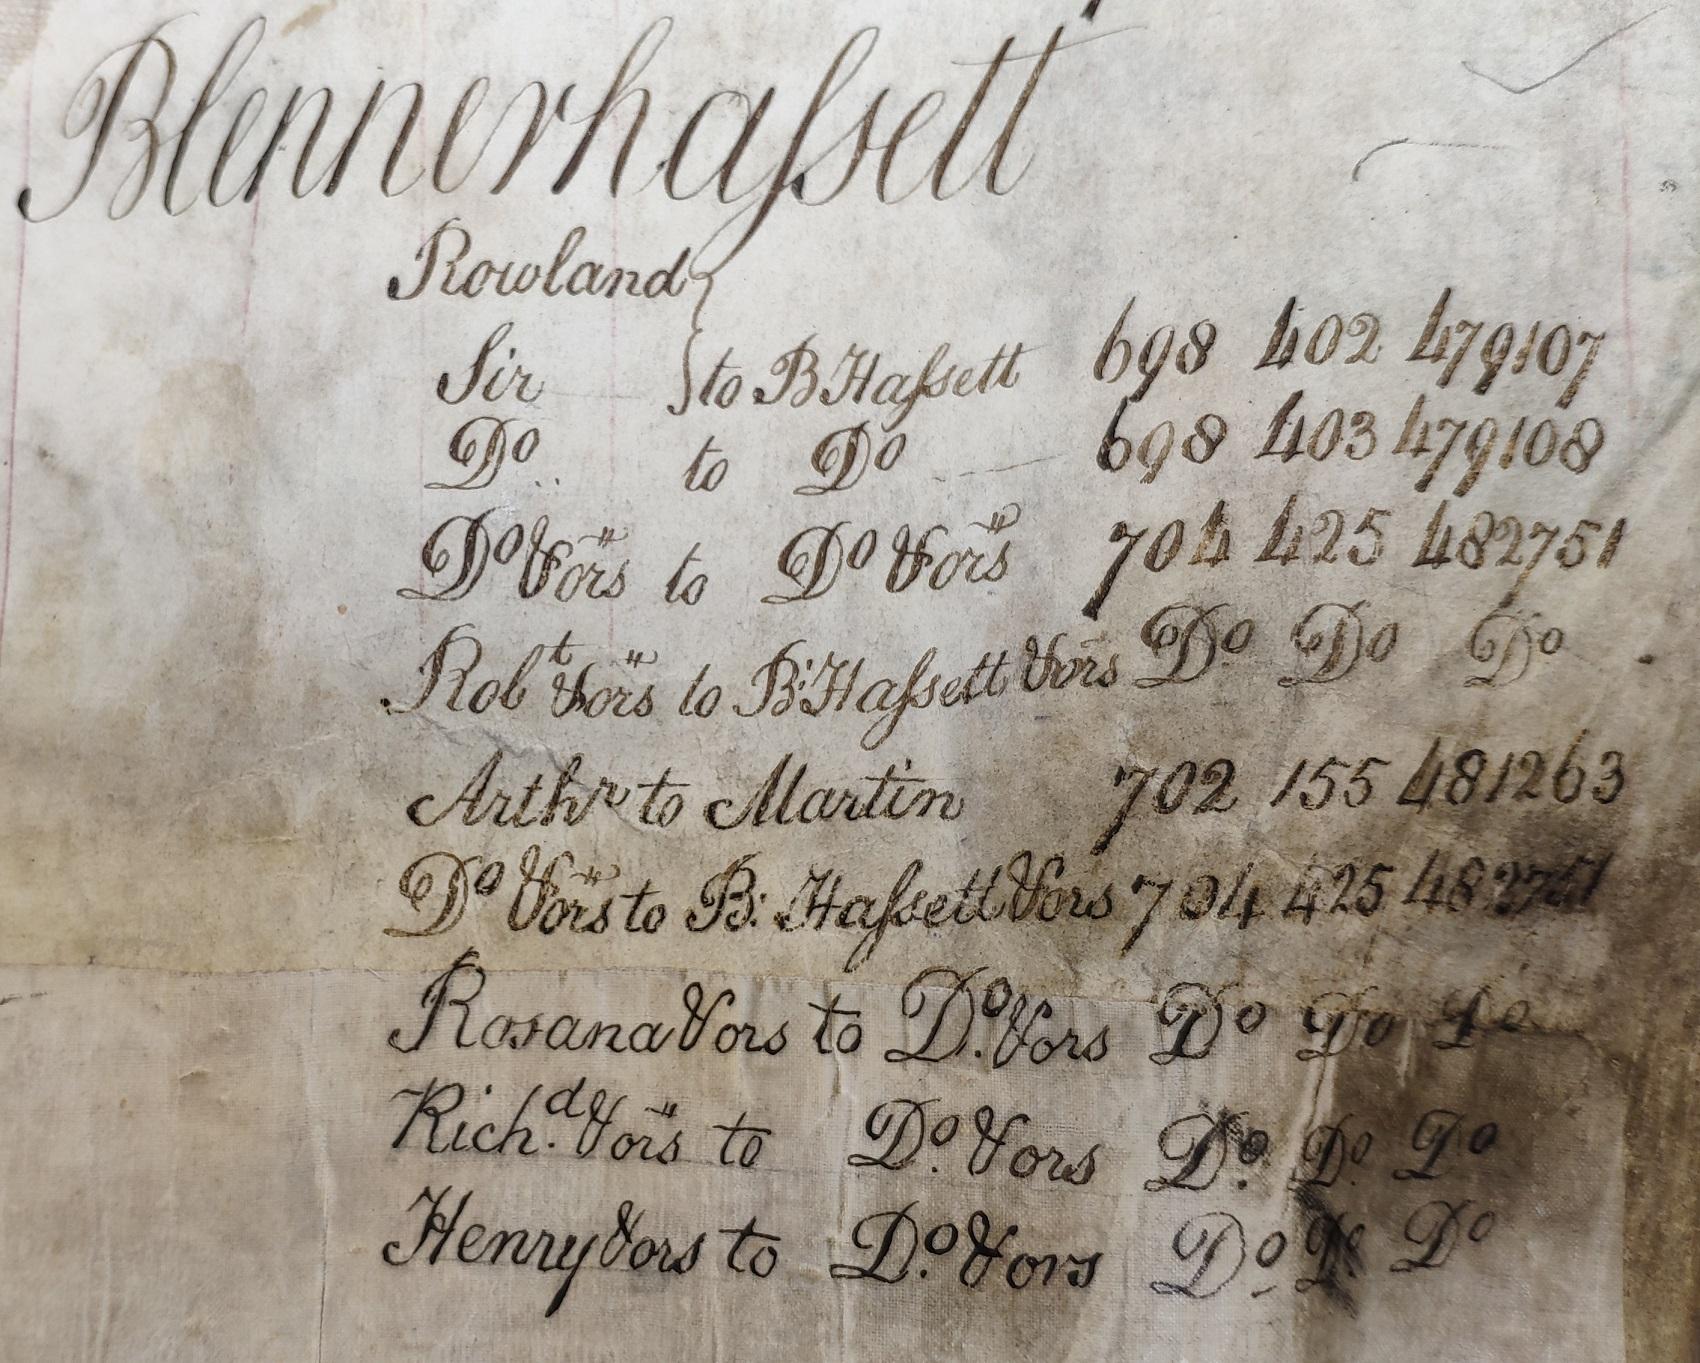 Blennerhaſsett
Rowland
Sir } to B Haſsett 698 402 479107
Do to Do 698 403 479108
Do & ors to Do & ors 704 425 482751
Robt & ors to B: Haſsett & ors Do Do Do
Arthr to Martin 702 155 481263
Do & ors to B: Haſsett & ors 704 425 482751
Rosana & ors to Do. & ors Do Do Do
Richd. & ors to Do. & ors Do. Do. Do
Henry & ors to Do. & ors Do Do Do